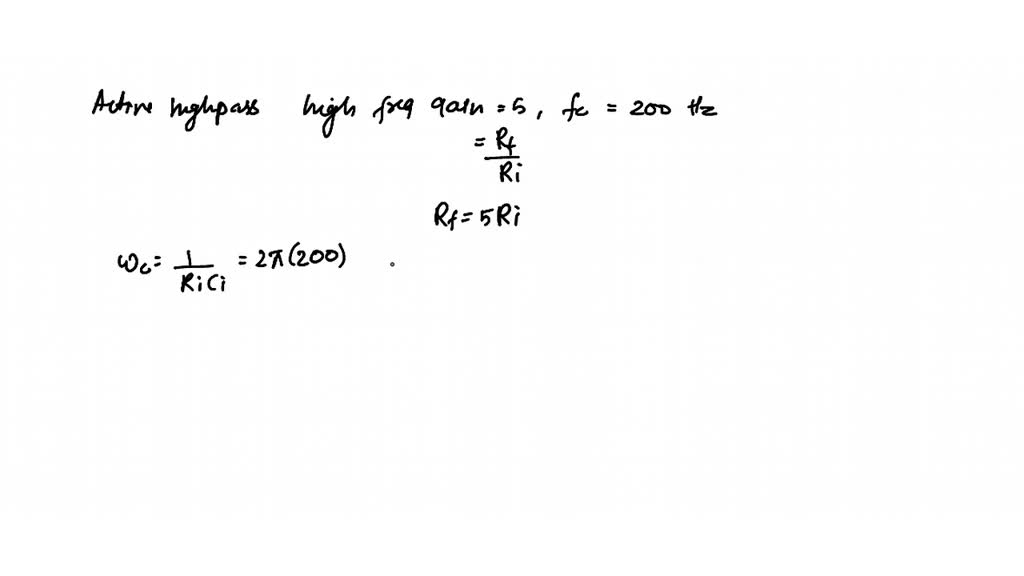 Active highpass high freq gain = 5, fc = 200 Hz
= Rf/Ri
Rf = 5Ri
ωc = 1/RiCi = 2π(200)